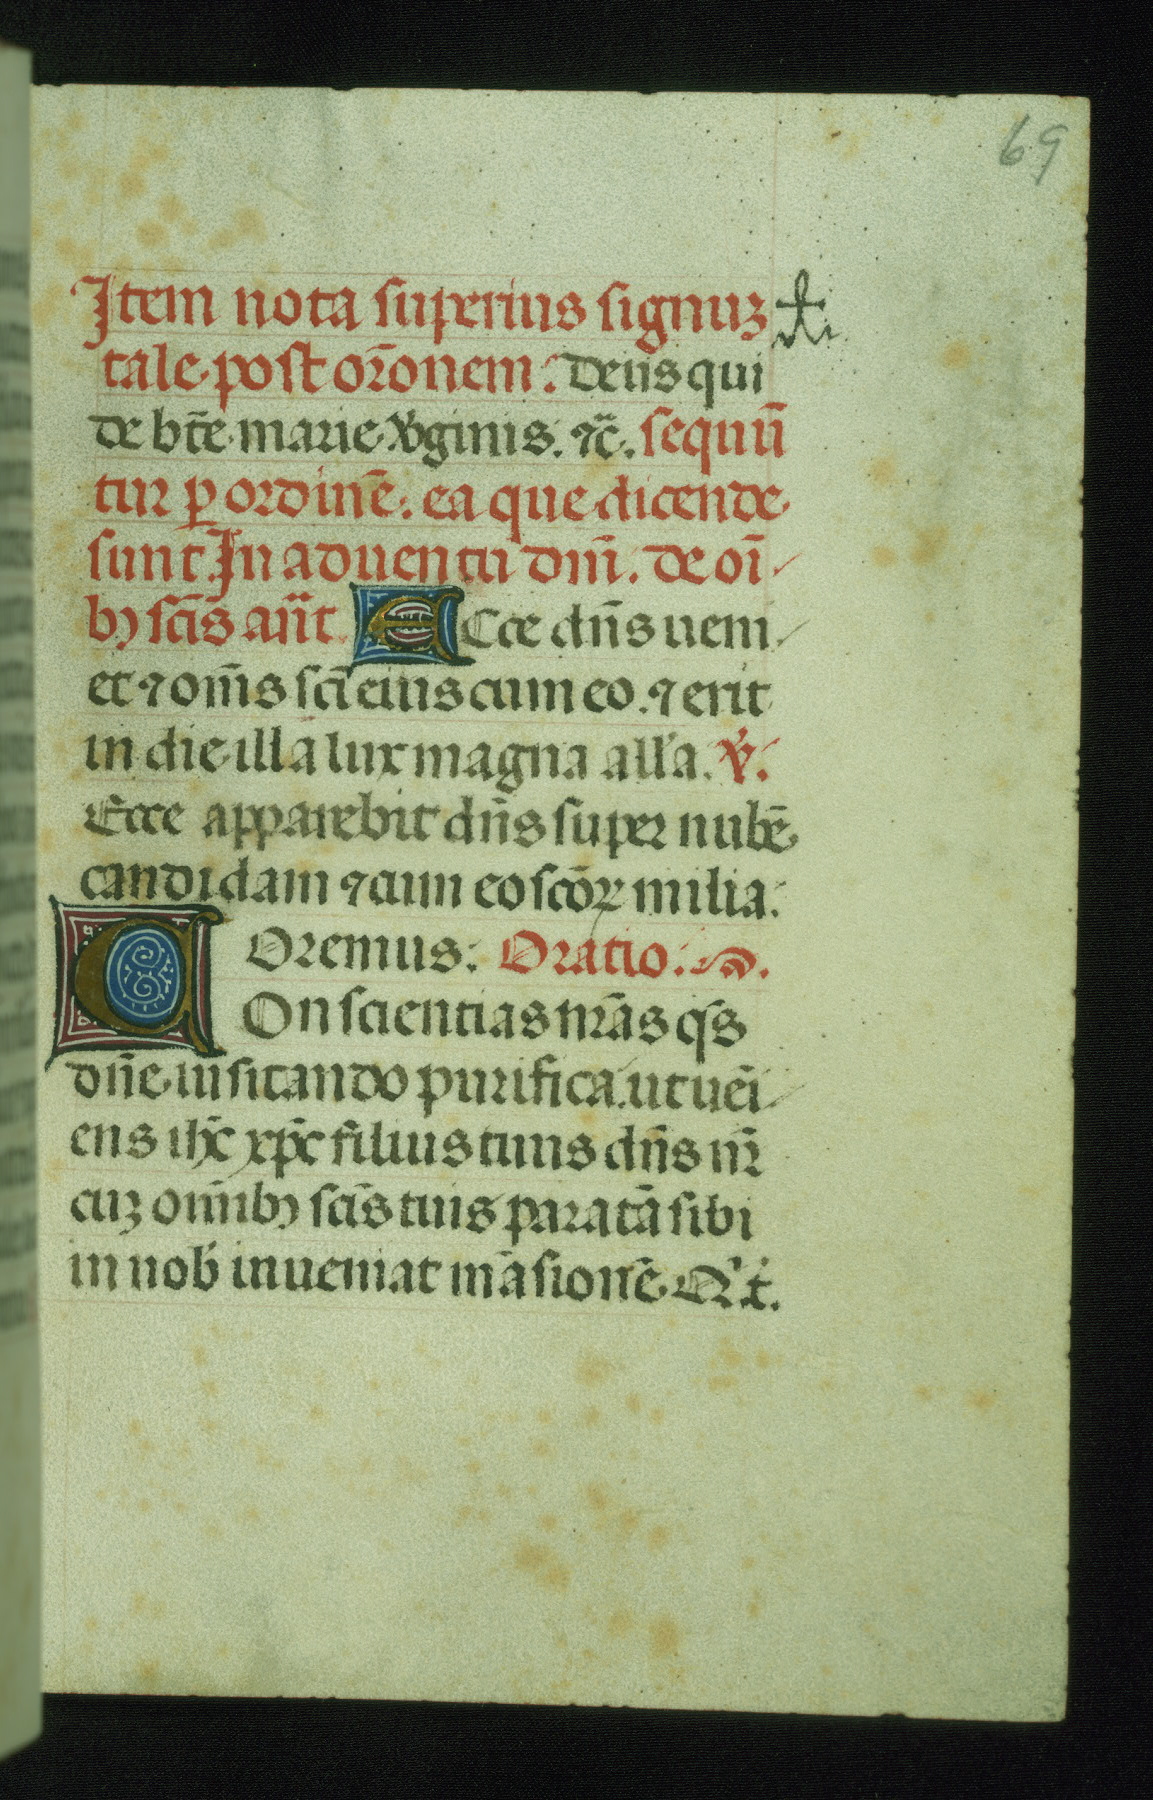 69
Item nota superius signuꝫ
tale post or̃onem: Deus qui
de bt̃e marie v̾ginis. ⁊c̃. sequũ
tur ꝑ ordinẽ. ea que dicende
sunt In aduentu dñi. de oĩ
bꝫ scĩs añt Ecce dñs ueni
et ⁊ om̃s scĩ eius cum eo. ⁊ erit
in die illa lux magna all'a. ℣.
Ecce apparebit dñs super nubẽ
candidam ⁊ cum eo scõꝝ milia.
Oremus: Oratio:
Conscientias nr̃as qs̃
dñe uisitando purifica. ut uẽi
ens ihc̃ xpc̃ filius tuus dñs nr̃
cuꝫ omĩbꝫ scĩs tuis paratã sibi
in nob̾ inueniat mãsionẽ